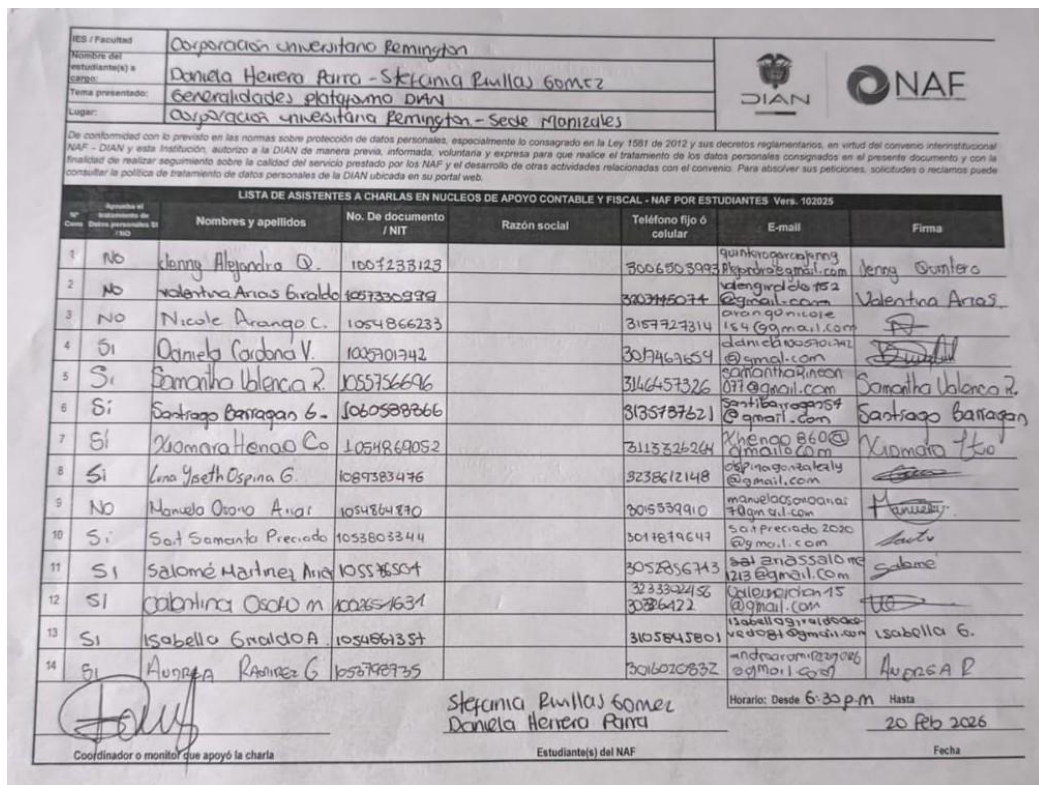 IES / Facultad Corporación universitaria Remington
Nombre del estudiante(s) a cargo: Daniela Herrera Parra - Stefania Ruillas Gomez
Tema presentado: Generalidades plataforma DIAN
Lugar: Corporación universitaria Remington - Sede Manizales
DIAN
NAF
De conformidad con lo previsto en las normas sobre protección de datos personales, especialmente lo consagrado en la Ley 1581 de 2012 y sus decretos reglamentarios, en virtud del convenio interinstitucional
NAF - DIAN y esta Institución, autorizo a la DIAN de manera previa, informada, voluntaria y expresa para que realice el tratamiento de los datos personales consignados en el presente documento y con la
finalidad de realizar seguimiento sobre la calidad del servicio prestado por los NAF y el desarrollo de otras actividades relacionadas con el convenio. Para absolver sus peticiones, solicitudes o reclamos puede
consultar la política de tratamiento de datos personales de la DIAN ubicada en su portal web.
LISTA DE ASISTENTES A CHARLAS EN NUCLEOS DE APOYO CONTABLE Y FISCAL - NAF POR ESTUDIANTES Vers. 102025
N° Cons Aprueba el tratamiento de Datos personales SI / NO Nombres y apellidos No. De documento / NIT Razón social Teléfono fijo ó celular E-mail Firma
1 NO Jenny Alejandra Q. 1007233123 3006503993 Jenny Quintero
2 NO Valentina Arias Giraldo 1057330999 @gmail.com Valentina Arias
3 NO Nicole Arango C. 1054866233 3157727314 arangonicole 154@gmail.com
4 Si Daniela Cardona V. 1005701742 3017467654 daniela1005701742 @gmail.com
5 Si Samantha Valencia R. 1055756696 3146457326 samantharincon 077@gmail.com Samantha Valencia R.
6 Si Santiago Barragan G. 1060588866 3135737621 santibarragan54 @gmail.com Santiago Barragan
7 Sí Xiomara Henao Co 1054869052 3113326264 Xhenao860@ gmail.com Xiomara
8 Si Lina Yiseth Ospina G. 3238612148 @gmail.com
9 NO Manuela Osorio Arias 1054864870 3015539910
10 Si Sari Samanta Preciado 1053803344 3017879647 @gmail.com
11 SI Salomé Martinez Arias 3052856743 1213@gmail.com Salomé
12 SI Valentina Osorio M 1002651631 @gmail.com
13 SI Isabella Giraldo A. 1054861357 3105845801 isabella G.
14 Si Andrea Ramirez G 1053798735 3016020832 @gmail.com Andrea R
Stefania Ruillas Gomez
Daniela Herrera Parra
Horario: Desde 6:30 p.m Hasta
20 Feb 2026
Coordinador o monitor que apoyó la charla Estudiante(s) del NAF Fecha